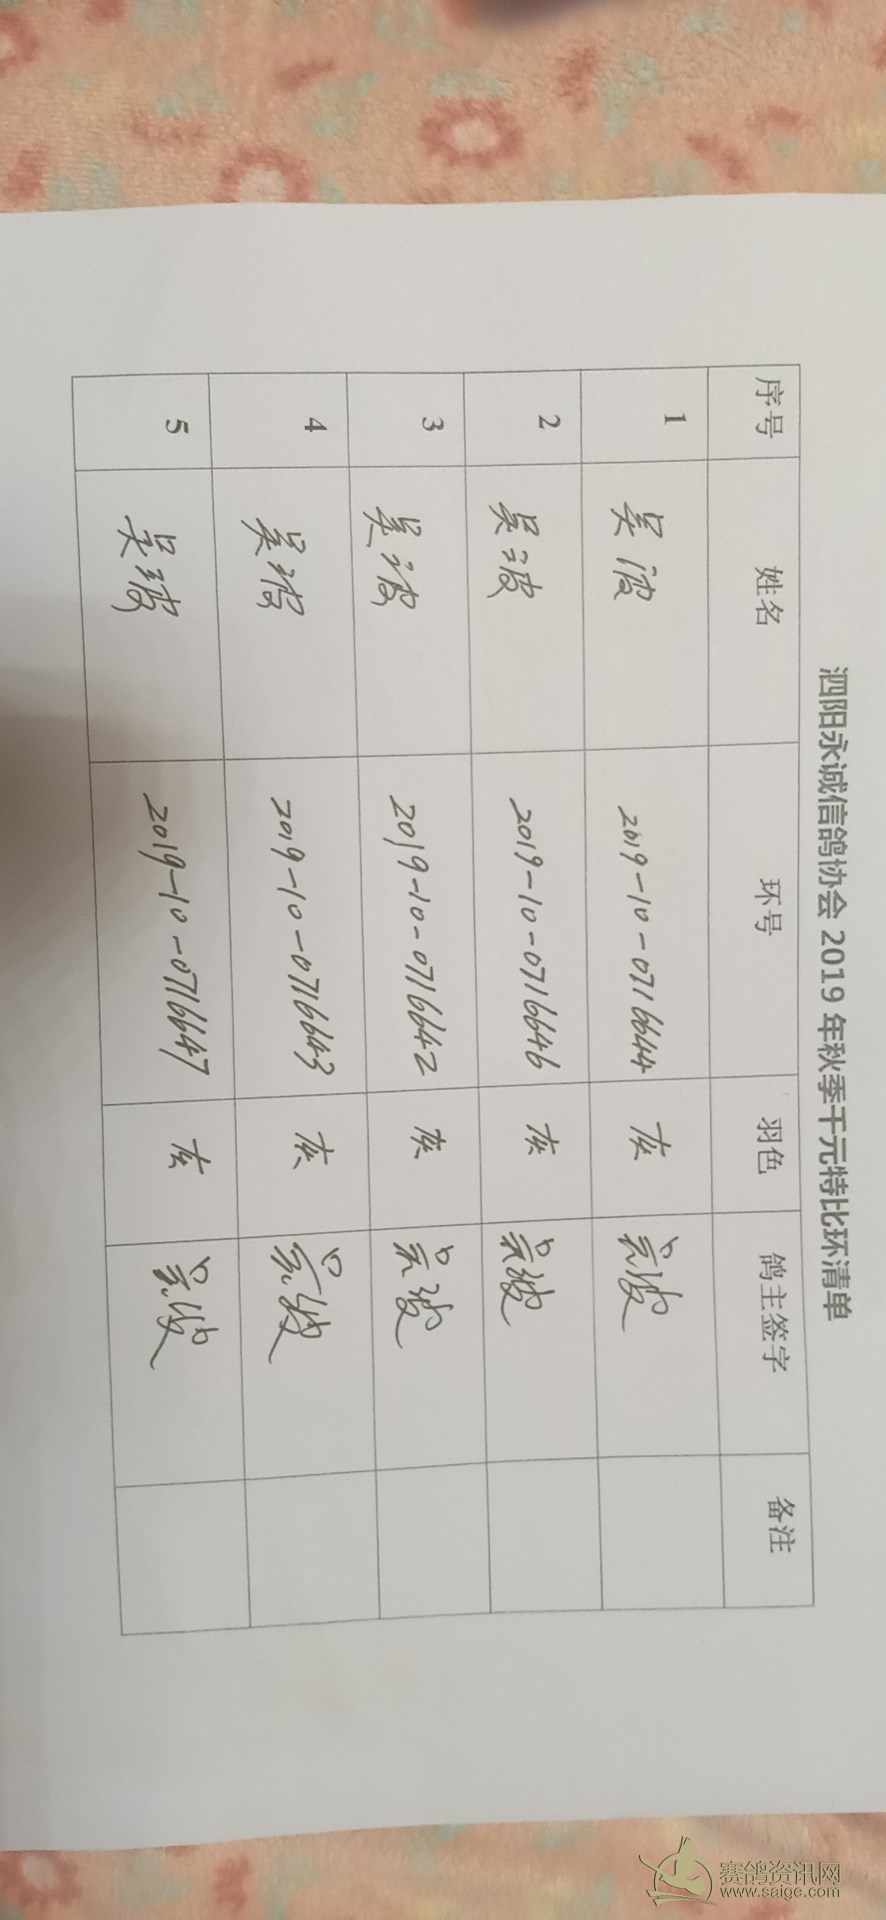 泗阳永诚信鸽协会 2019 年秋季千元特比环清单
序号 姓名 环号 羽色 鸽主签字 备注
1 吴波 2019-10-0716644 灰 吴波
2 吴波 2019-10-0716646 灰 吴波
3 吴波 2019-10-0716642 灰 吴波
4 吴波 2019-10-0716643 灰 吴波
5 吴波 2019-10-0716647 灰 吴波
赛鸽资讯网
www.saige.com